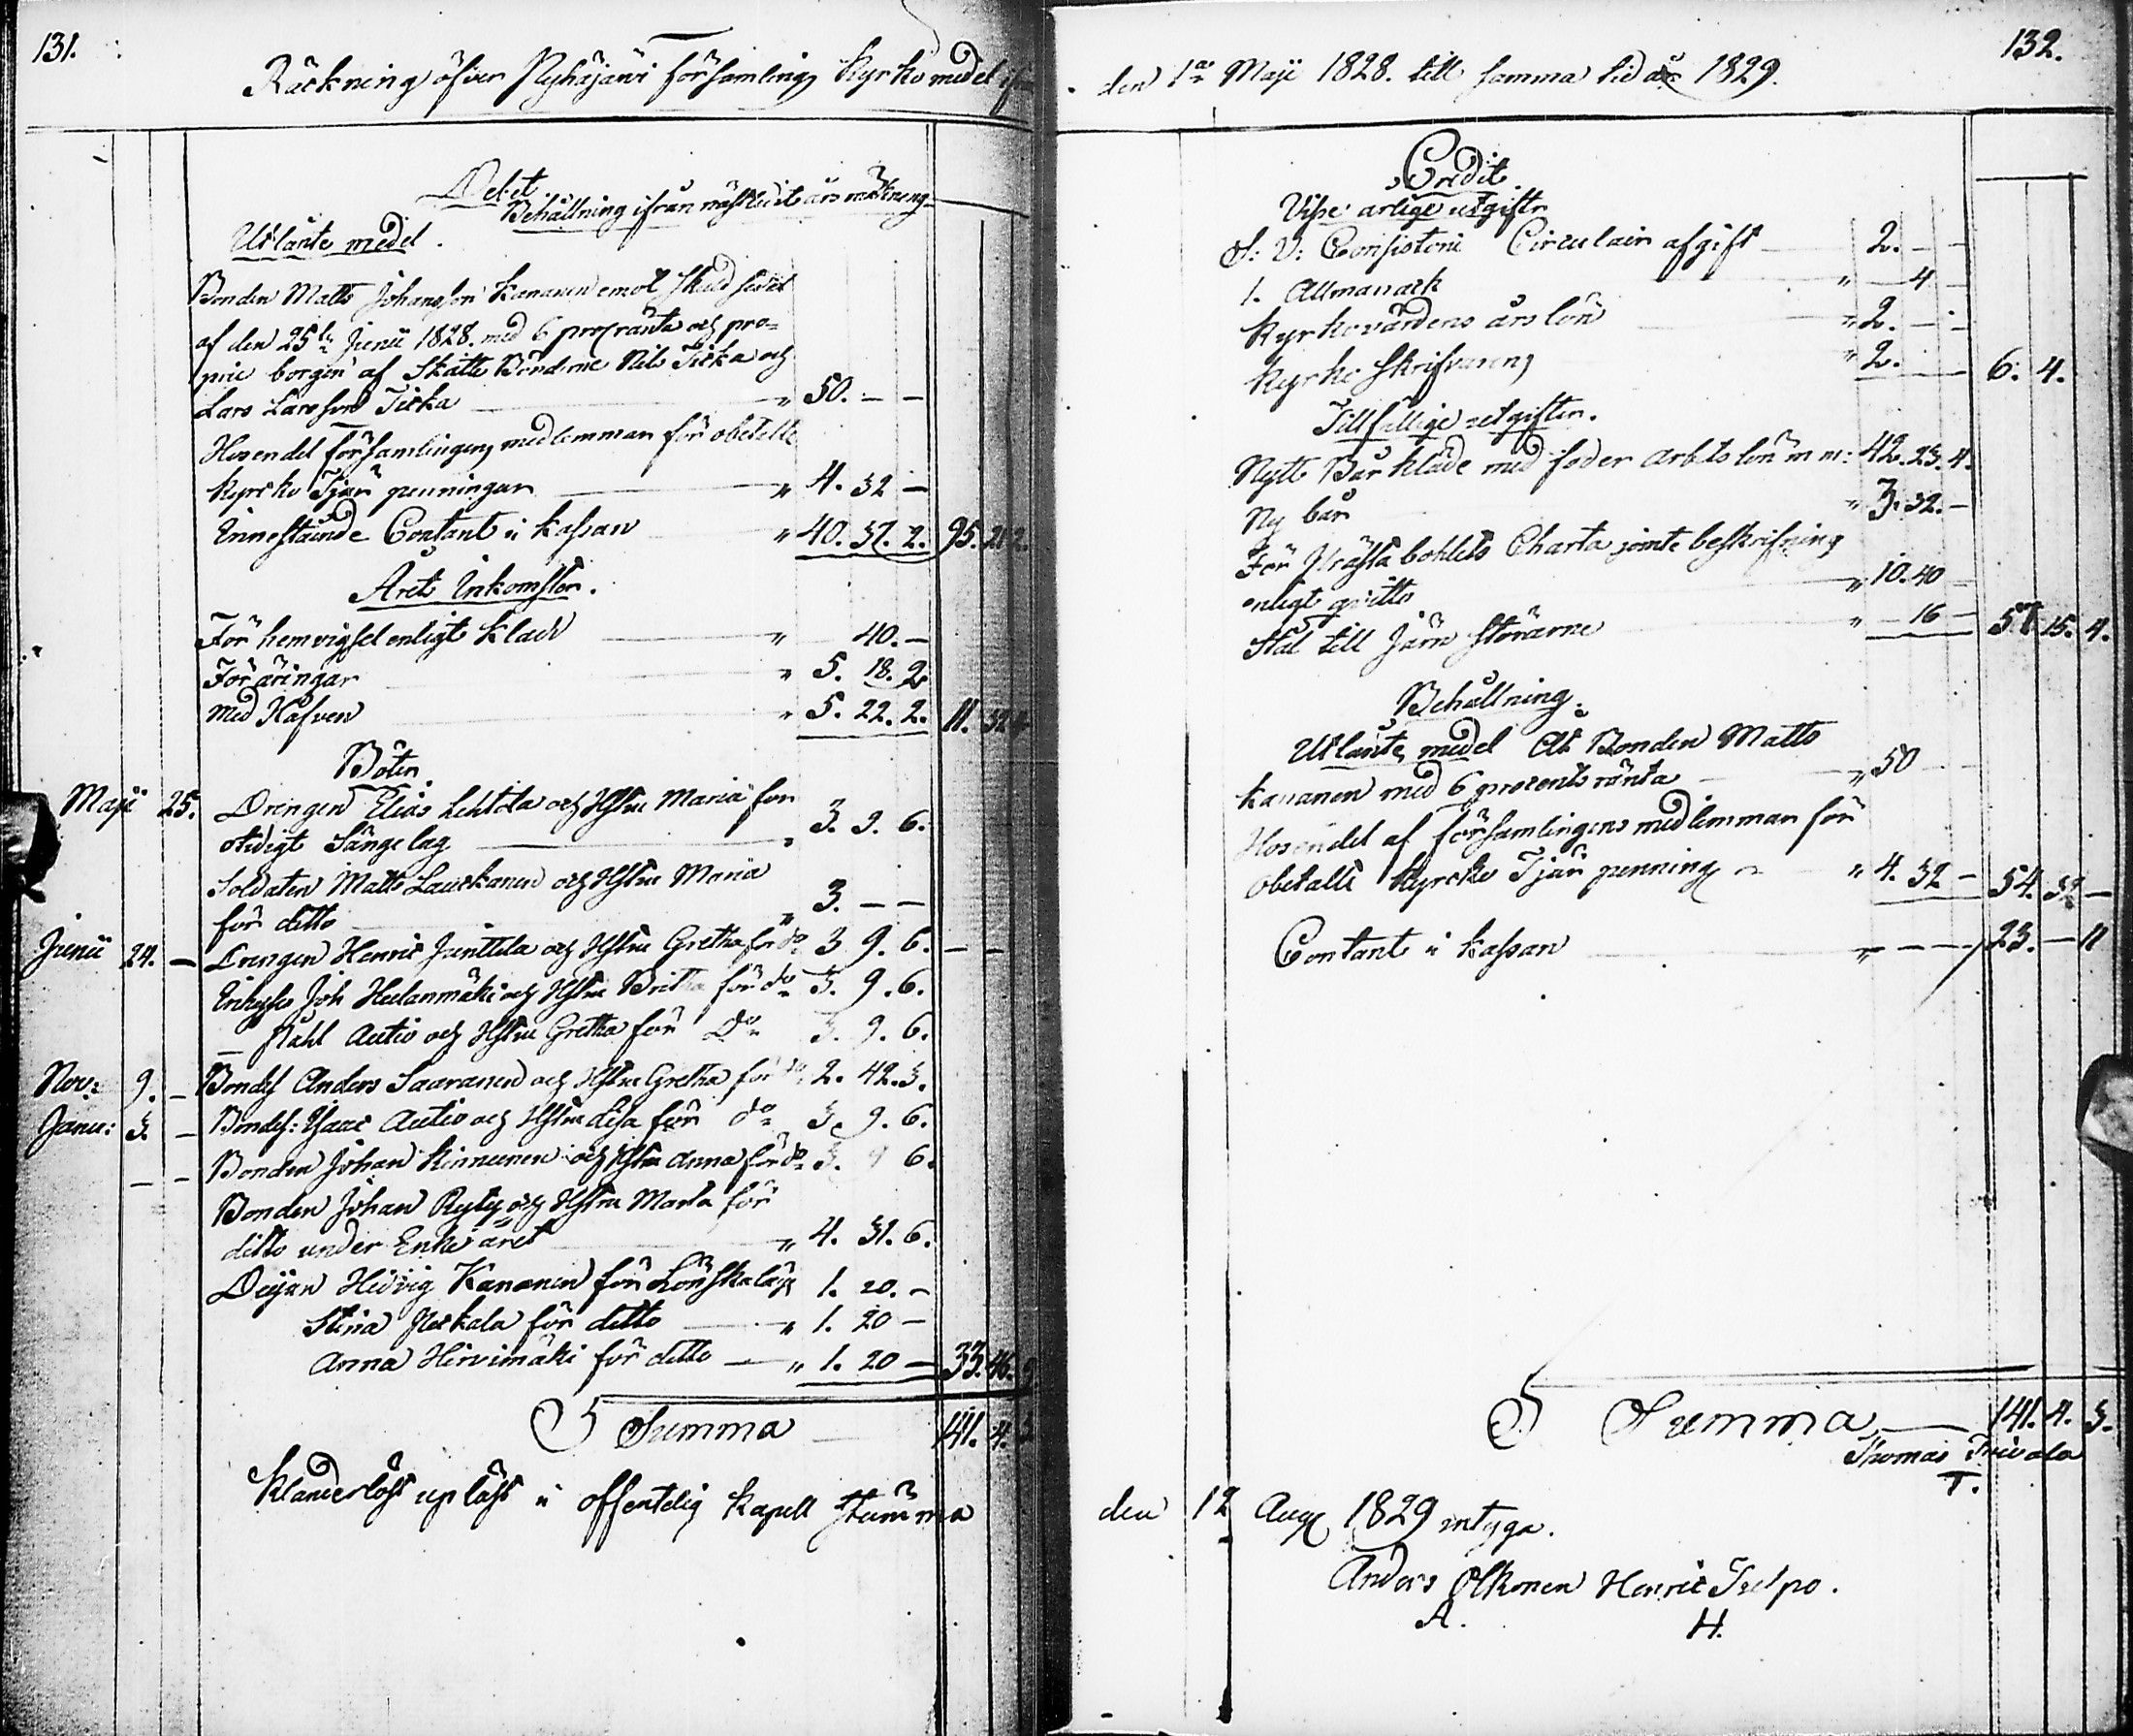 131.
Räckning öfver Pyhäjärvi församlings Kyrko medel ifrån
Debet.
Behållning ifrån nästledit års räkning
Utlånte medel.
Bonden Matts Johansson Kananen emot skuld sedel
af den 25te Junii 1828. med 6 procränta och pro=
prie borgen af Skatte Bönderne Nils Ticka och
Lars Larsson Ticka " 50. — —
Hosendel församlingens medlemmar för obetalte
kyrko Tjär penningar " 4. 32 —
Innestående Contant i kassan " 40. 37. 2. 95. 21 2.
Årets Inkomster.
För hemvigsel enligt klad " 40. —
Föräringar " 5. 18. 2
Med Håfven " 5. 22. 2. 11. 32 4
Böter.
Maji 25. Drengen Elias Lehtola och Hustru Maria för
otidigt Sängelag " 3. 9. 6.
Soldaten Matts Lauckanen och Hustru Maria
för ditto " 3. — —
Junii 24. — Drengen Henric Junttila och Hustru Gretha för do 3 9. 6. — —
Joh Heelanmäki och Hustru Britha för do 3. 9. 6.
— Påhl Autio och Hustru Gretha för Do 3. 9. 6.
Nov: 9. — Bondes Anders Saaranen och Hustru Gretha för do 2. 42. 3.
Janu: 3. — Bondes: Isaac Autio och Hustru Lisa för do 3. 9. 6.
— — Bonden Johan Kinnunen och Hustru Anna för do 3. 9 6.
Bonden Johan Ryty och Hustru Maria för
ditto under Enke året " 4. 31. 6.
Deijan Hedvig Kananen för Lönskaläge 1. 20. —
Stina för ditto " 1. 20 —
Anna Hirvimäki för ditto — " 1. 20 — 33. 46.
Summa 141. 4. 3
Klanderlöst upläst i offentelig kapell stämma
132.
den 1ta Maji 1828. till samma tid år 1829.
Credit.
Visse årlige utgifter
S: V: Consistorii Circulair afgift 2. — —
1. Allmanack " — 4 —
Kyrkovärdens års lön " 2. — —
Kyrko skrifvarens " 2. — 6. 4.
Tillfällige utgifter.
Nytt Bår kläde med foder arbets lön m m: 42. 23. 4.
Ny bår " 3. 32. —
För Prästa bohlets Charta jämte beskrifning
enligt qvitto " 10. 40 —
Stål till Järn störarne " — 16 — 57 15. 4.
Behållning.
Utlånte medel Åt Bonden Matts
kananen med 6 procents ränta " 50
Hosendel af församlingens medlemmar för
obetallt kyrcko Tjär penningar " 4. 32 — 54. 32 —
Contant i kassan " — — — 23. — 11
Summa 141. 4. 3.
Thomas
T.
den 12 Aug 1829 intyga.
Anders Olkonen Henric
A. H.